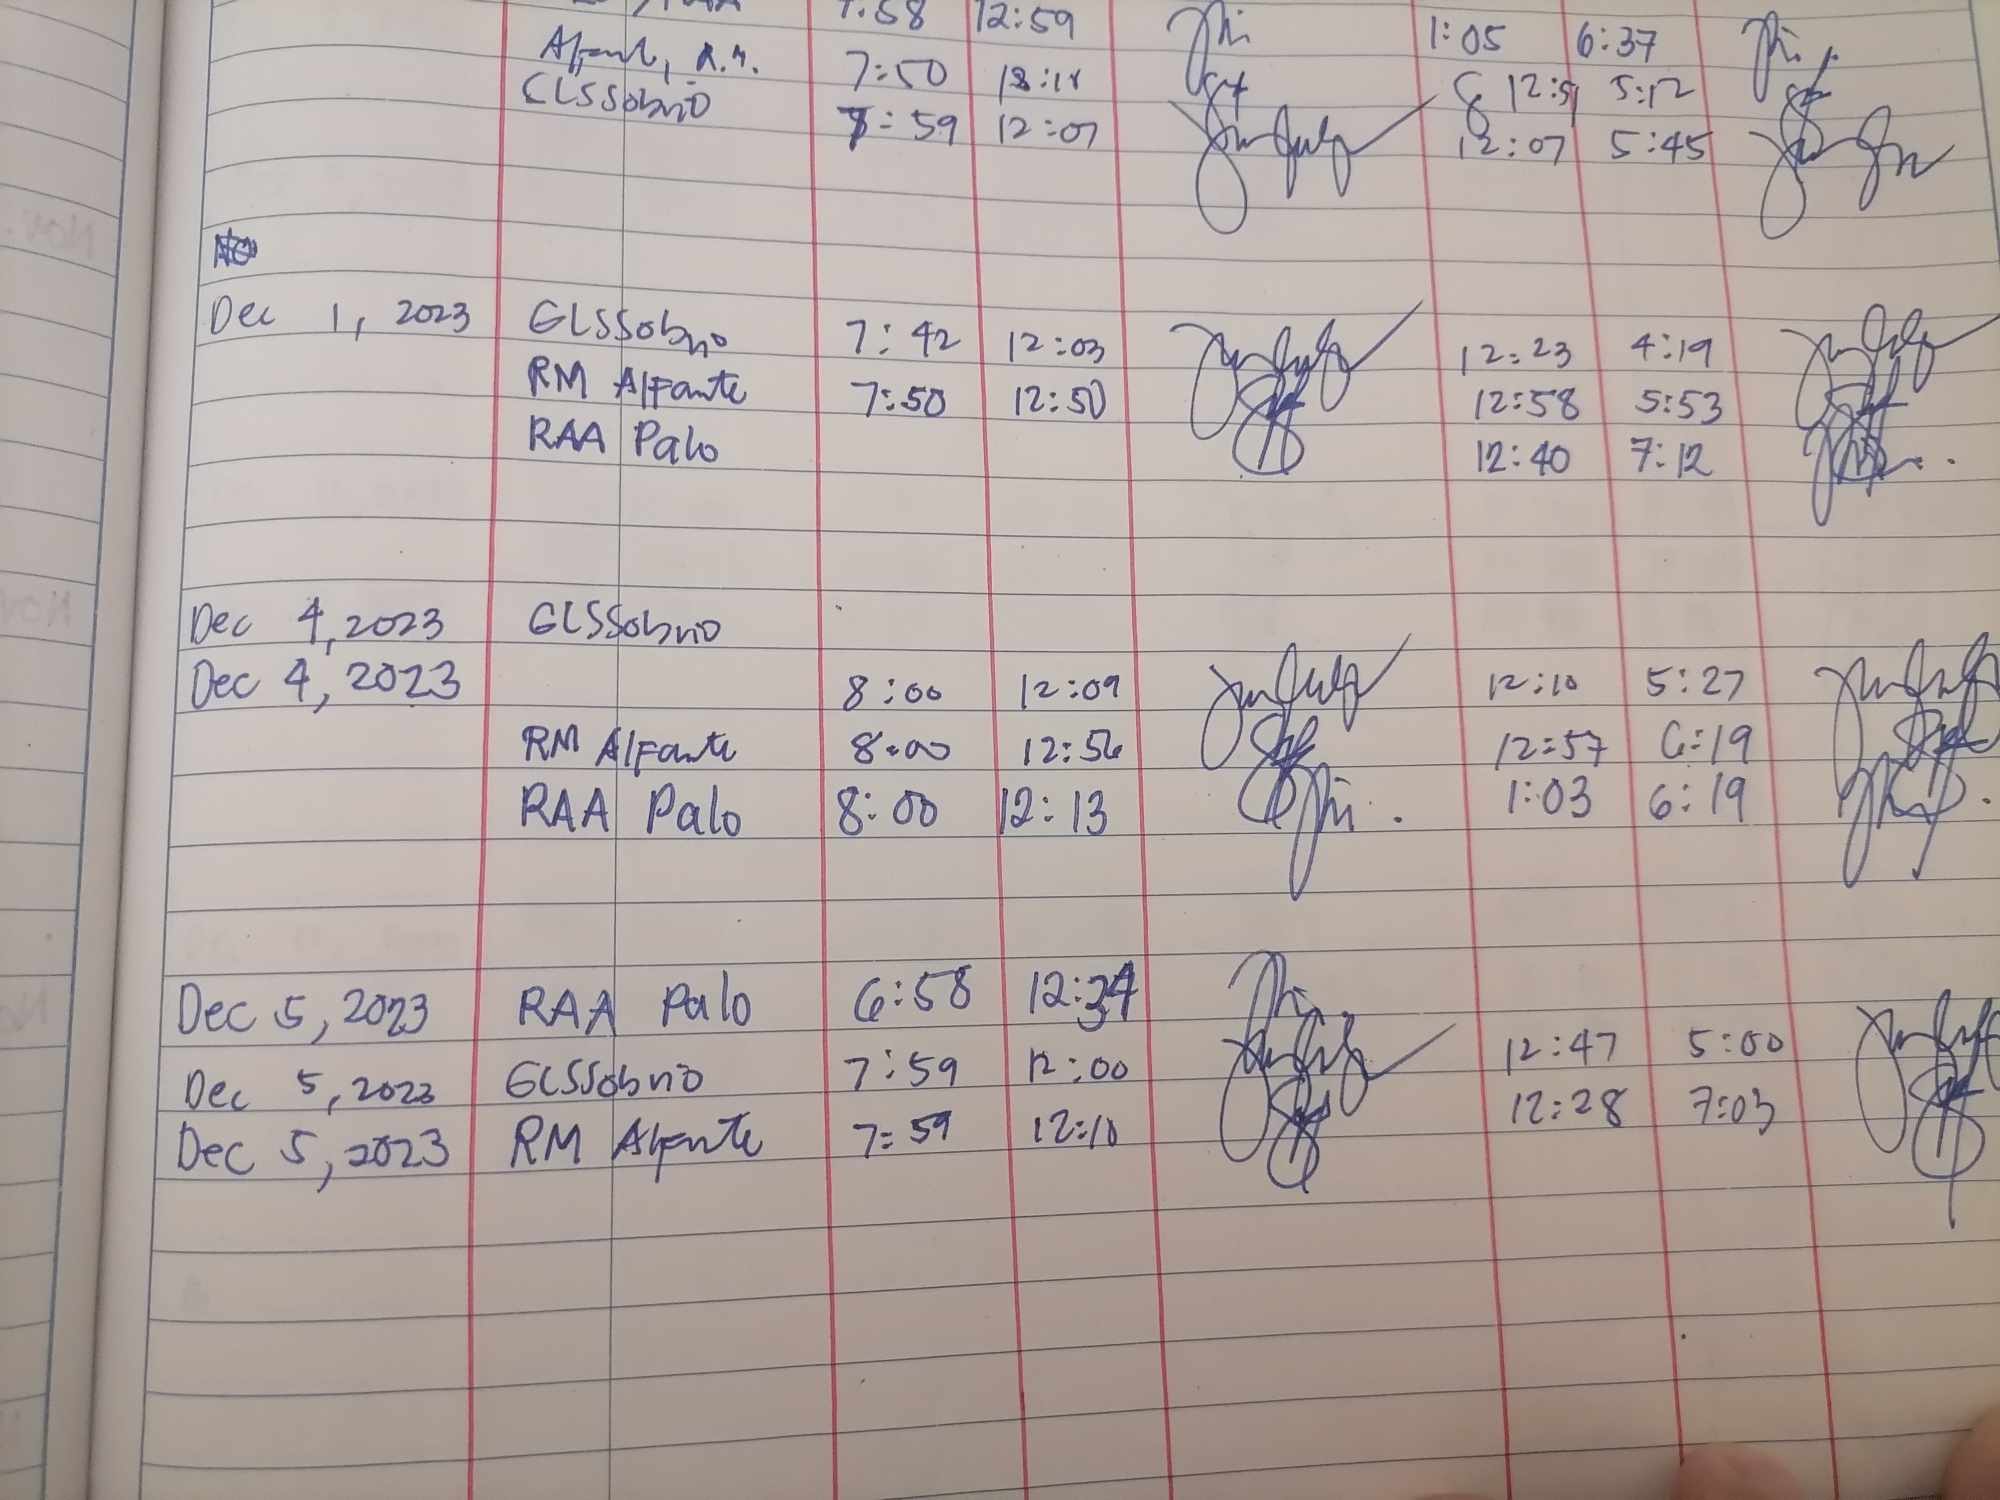 7:58 12:59 1:05 6:37
Alfante, R.M. 7:50 12:51 5:12
GLSSobrio 7:59 12:07 12:07 5:45
Dec 1, 2023 GLSSobrio 7:42 12:03 12:23 4:19
RM Alfante 7:50 12:50 12:58 5:53
RAA Palo 12:40 7:12
Dec 4, 2023 GLSSobrio
Dec 4, 2023 8:00 12:09 12:10 5:27
RM Alfante 8:00 12:56 12:57 6:19
RAA Palo 8:00 12:13 1:03 6:19
Dec 5, 2023 RAA Palo 6:58 12:34
Dec 5, 2023 GLSSobrio 7:59 12:00 12:47 5:00
Dec 5, 2023 RM Alfante 7:59 12:10 12:28 7:03